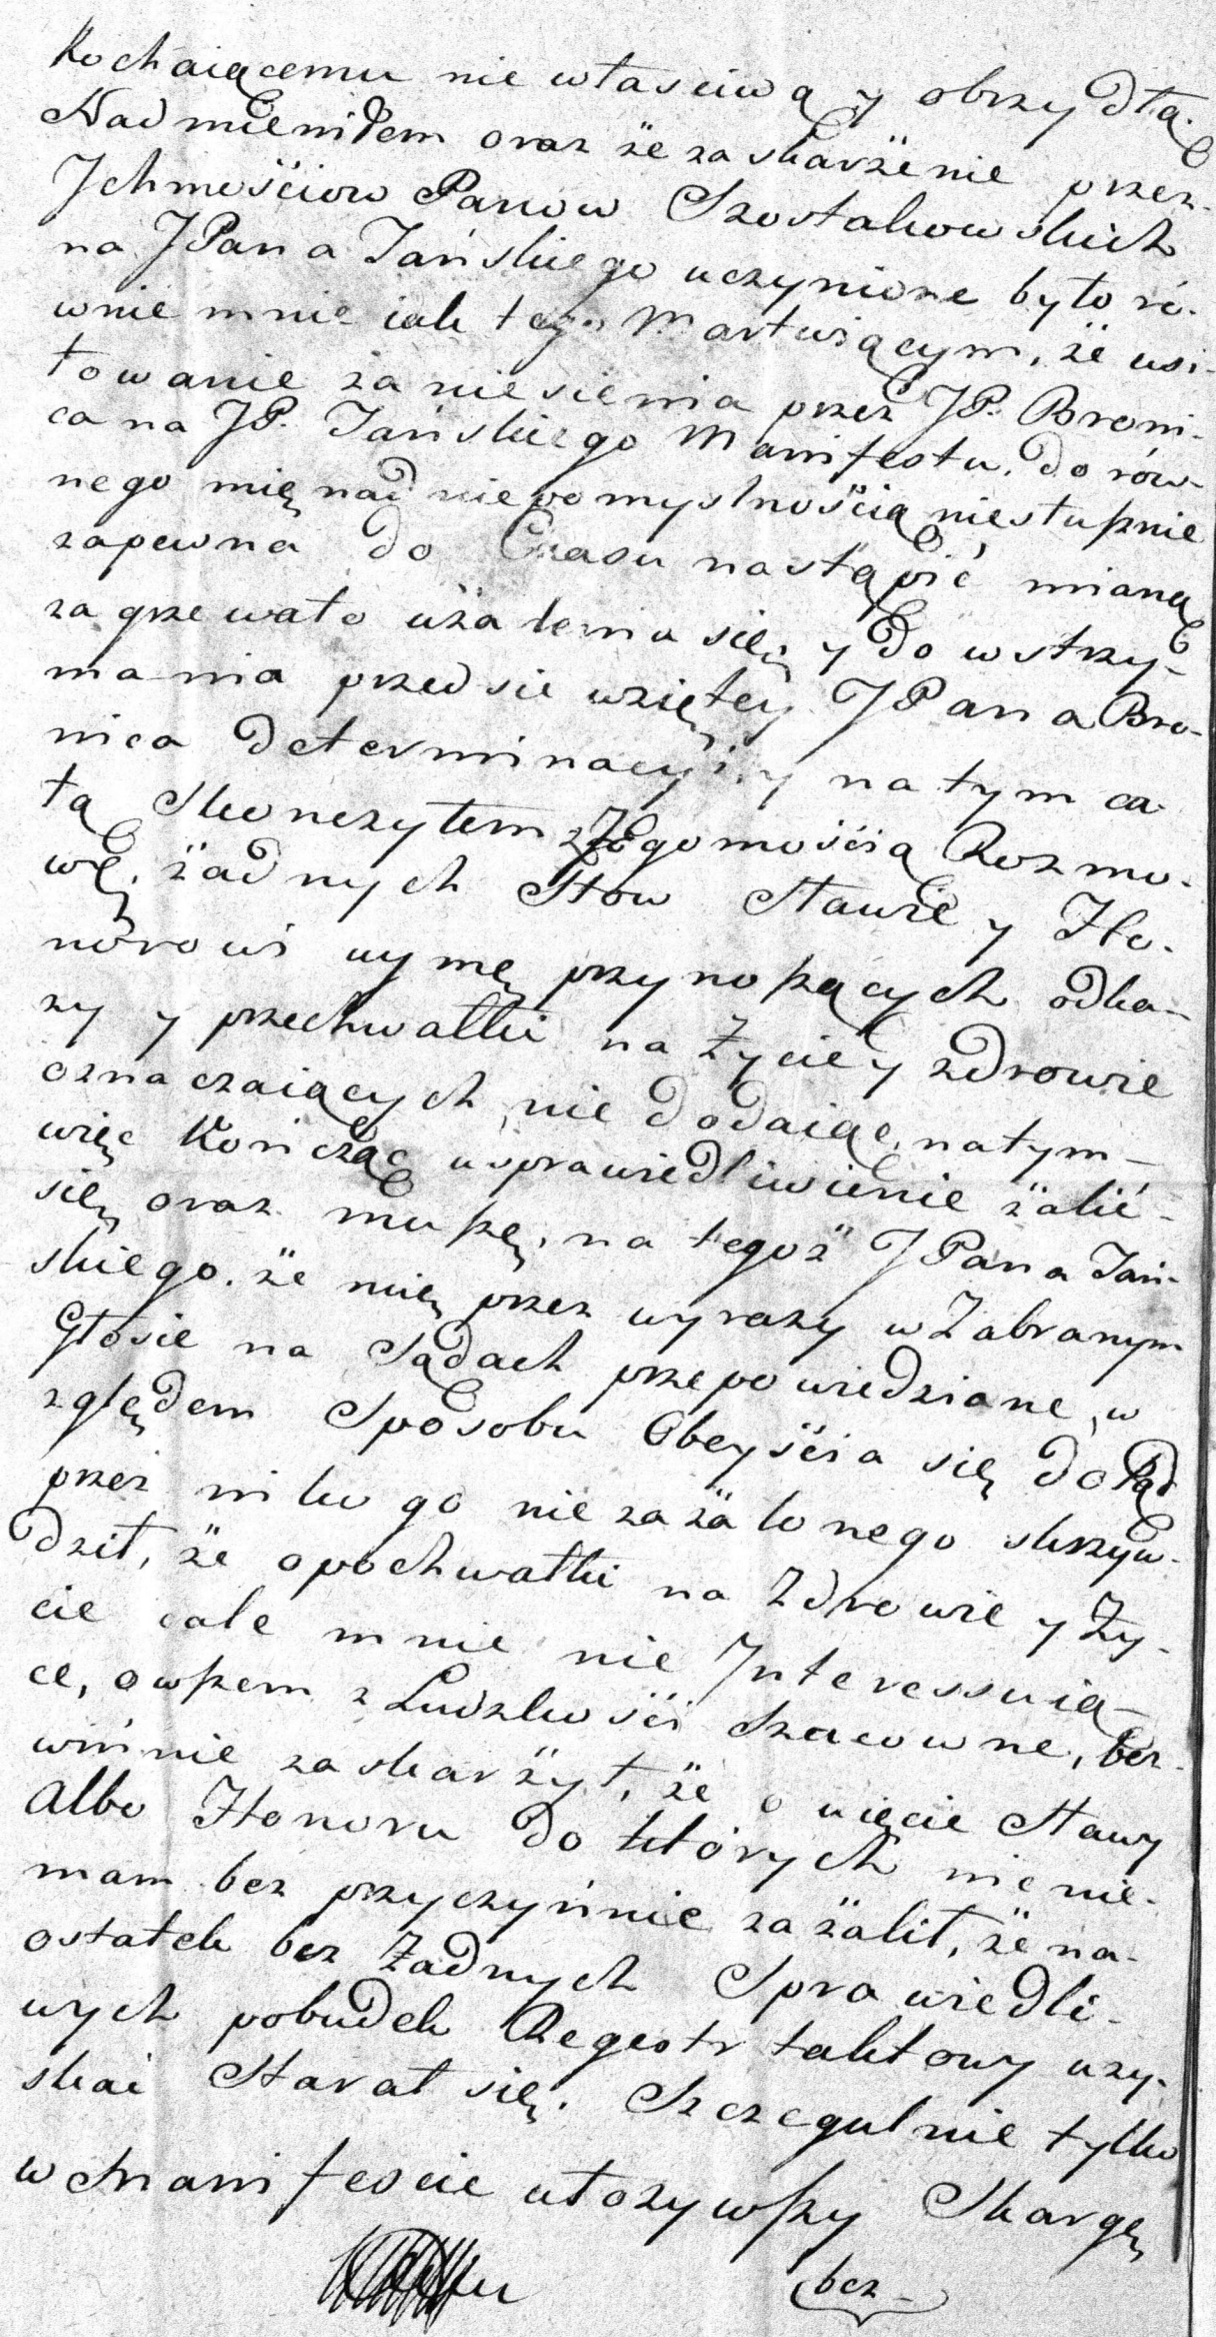 Kochaiącemu nie własciwą y obrzydłą.
Nadmieniłem oraz że zaskarżenie przez
Jchmościow Panow Szostakowskich
na JPana Jańskiego uczynione było ró-
wnie mnie iak tego Martwiącym, że usi-
łowanie zaniesienia przez JP. Broni-
ca na JP. Jańskiego Manifestu. do rów-
nego mię nad niepomyslnością niesłusznie
zapewna do Czasu nastąpić mianą
zagrzewało użalenia się, y do wstrzy-
mania przedsiewziętey JPana Bro-
nica determinacyi, y na tym ca
łą skonczyłem z Jegomością Rozmo-
wę, żadnych Słow Sławie y Ho-
norowi uymę przynoszących odka-
zy y przechwałki na Życie y zdrowie
oznaczaiących, nie dodaiąc, na tym-
więc Kończąc usprawiedliwienie żalić-
się oraz muszę, na tegoż JPana Jań-
skiego. że mię przez wyrazy w Zabranym
Głosie na Sądach przepowiedziane, w
zględem Sposobu Obeyścia się dokąd
przez nikogo niezażalonego skrzyw-
dził, że o pochwałki na Zdrowie y Ży-
cie cale mnie nie Jnteressuią-
ce, owszem z Ludzkości Szacowne, bez-
winnie zaskarżył, że o uięcie Sławy
Albo Honoru do których nic nie-
mam bez przyczynnie zażalił, że na-
ostatek bez Żadnych Sprawiedli-
wych pobudek Regestr taktowy uzy-
skać Starał się. Szczegulnie tylko
w Manifescie ułożywszy Skargę
bez-